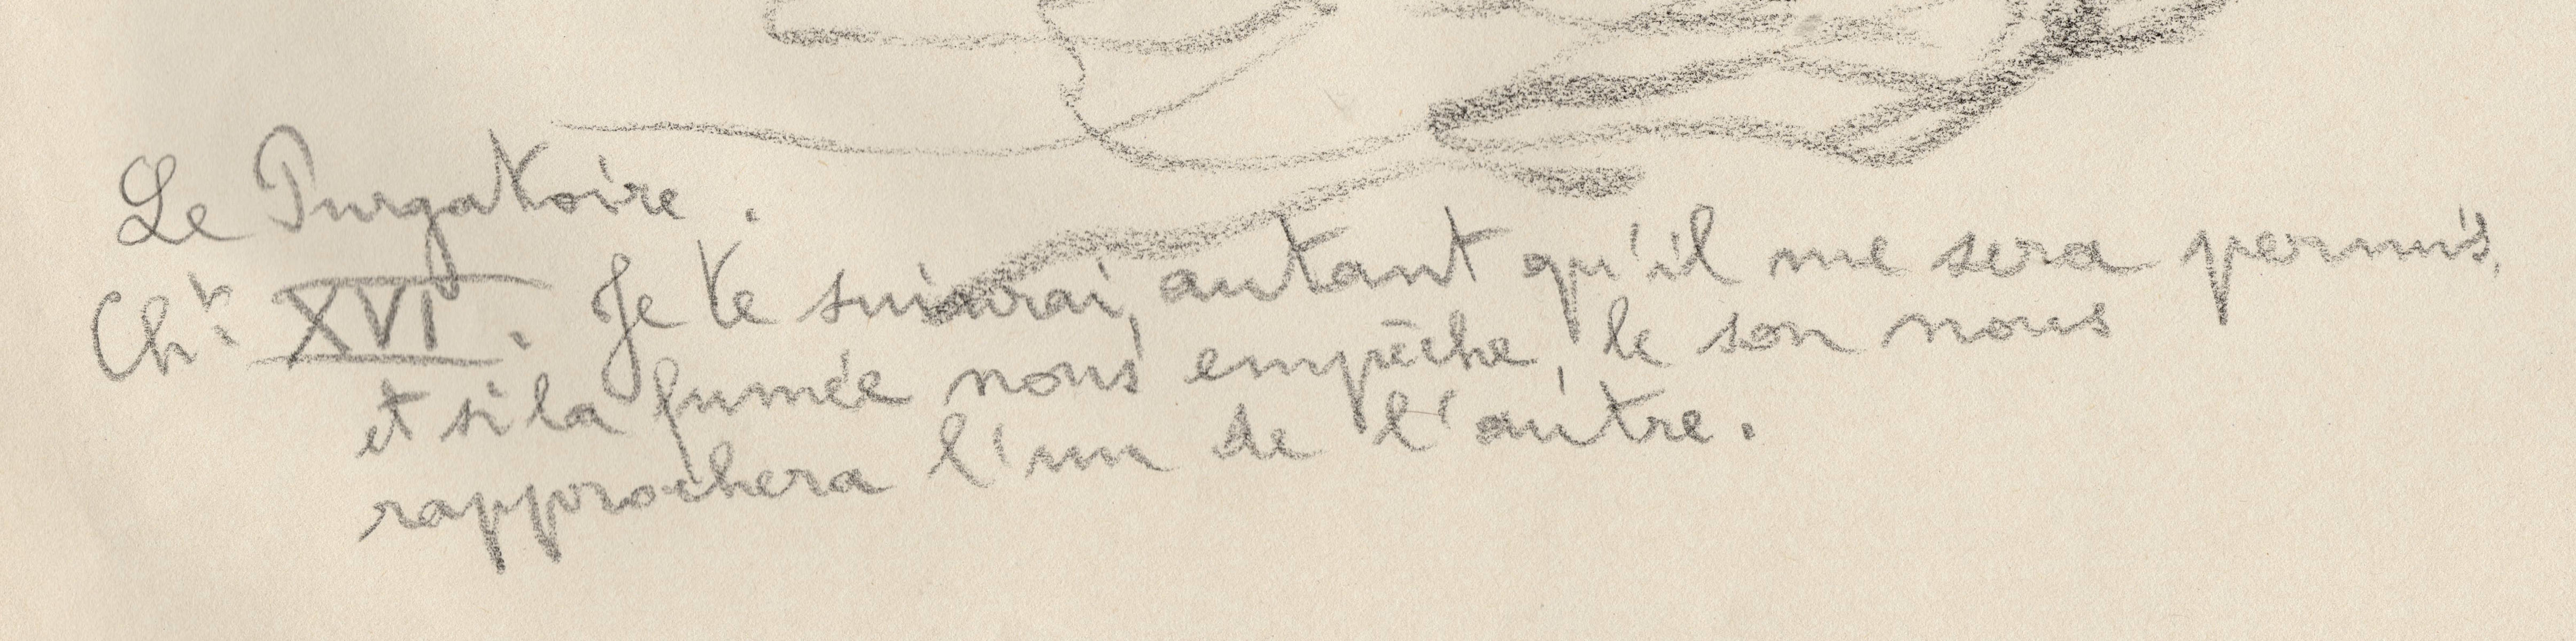 Le Purgatoire.
Ch. XVI. Je te suivrai, autant qu'il me sera permis,
et si la fumée nous empêche, le son nous
rapprochera l'un de l'autre.